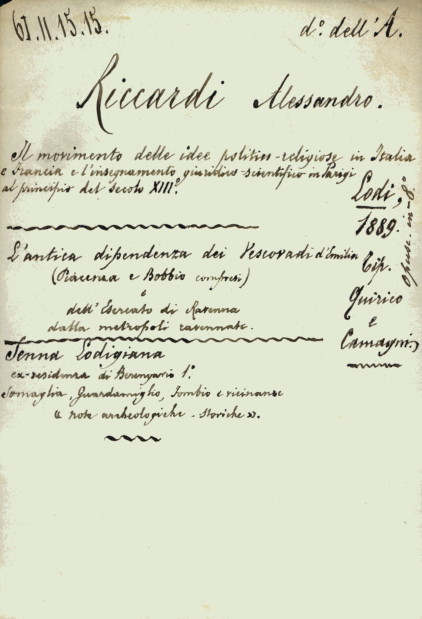 61.11.15.15.
d.° dell'A.
Riccardi Alessandro.
Il movimento delle idee politico-religiose in Italia
e Francia e l'insegnamento giuridico-scientifico in Parigi
al principio del secolo XIII.°
Lodi,
1889.
Tip.
Quirico
e
Camagni,
opusc. in-8°
L'antica dipendenza dei Vescovadi d'Emilia
(Piacenza e Bobbio compresi)
e
dell'Esarcato di Ravenna
dalla metropoli ravennate.
Senna Lodigiana
ex-residenza di Berengario 1.°
Somaglia, Guardamiglio, Fombio e vicinanze
« note archeologiche-storiche ».